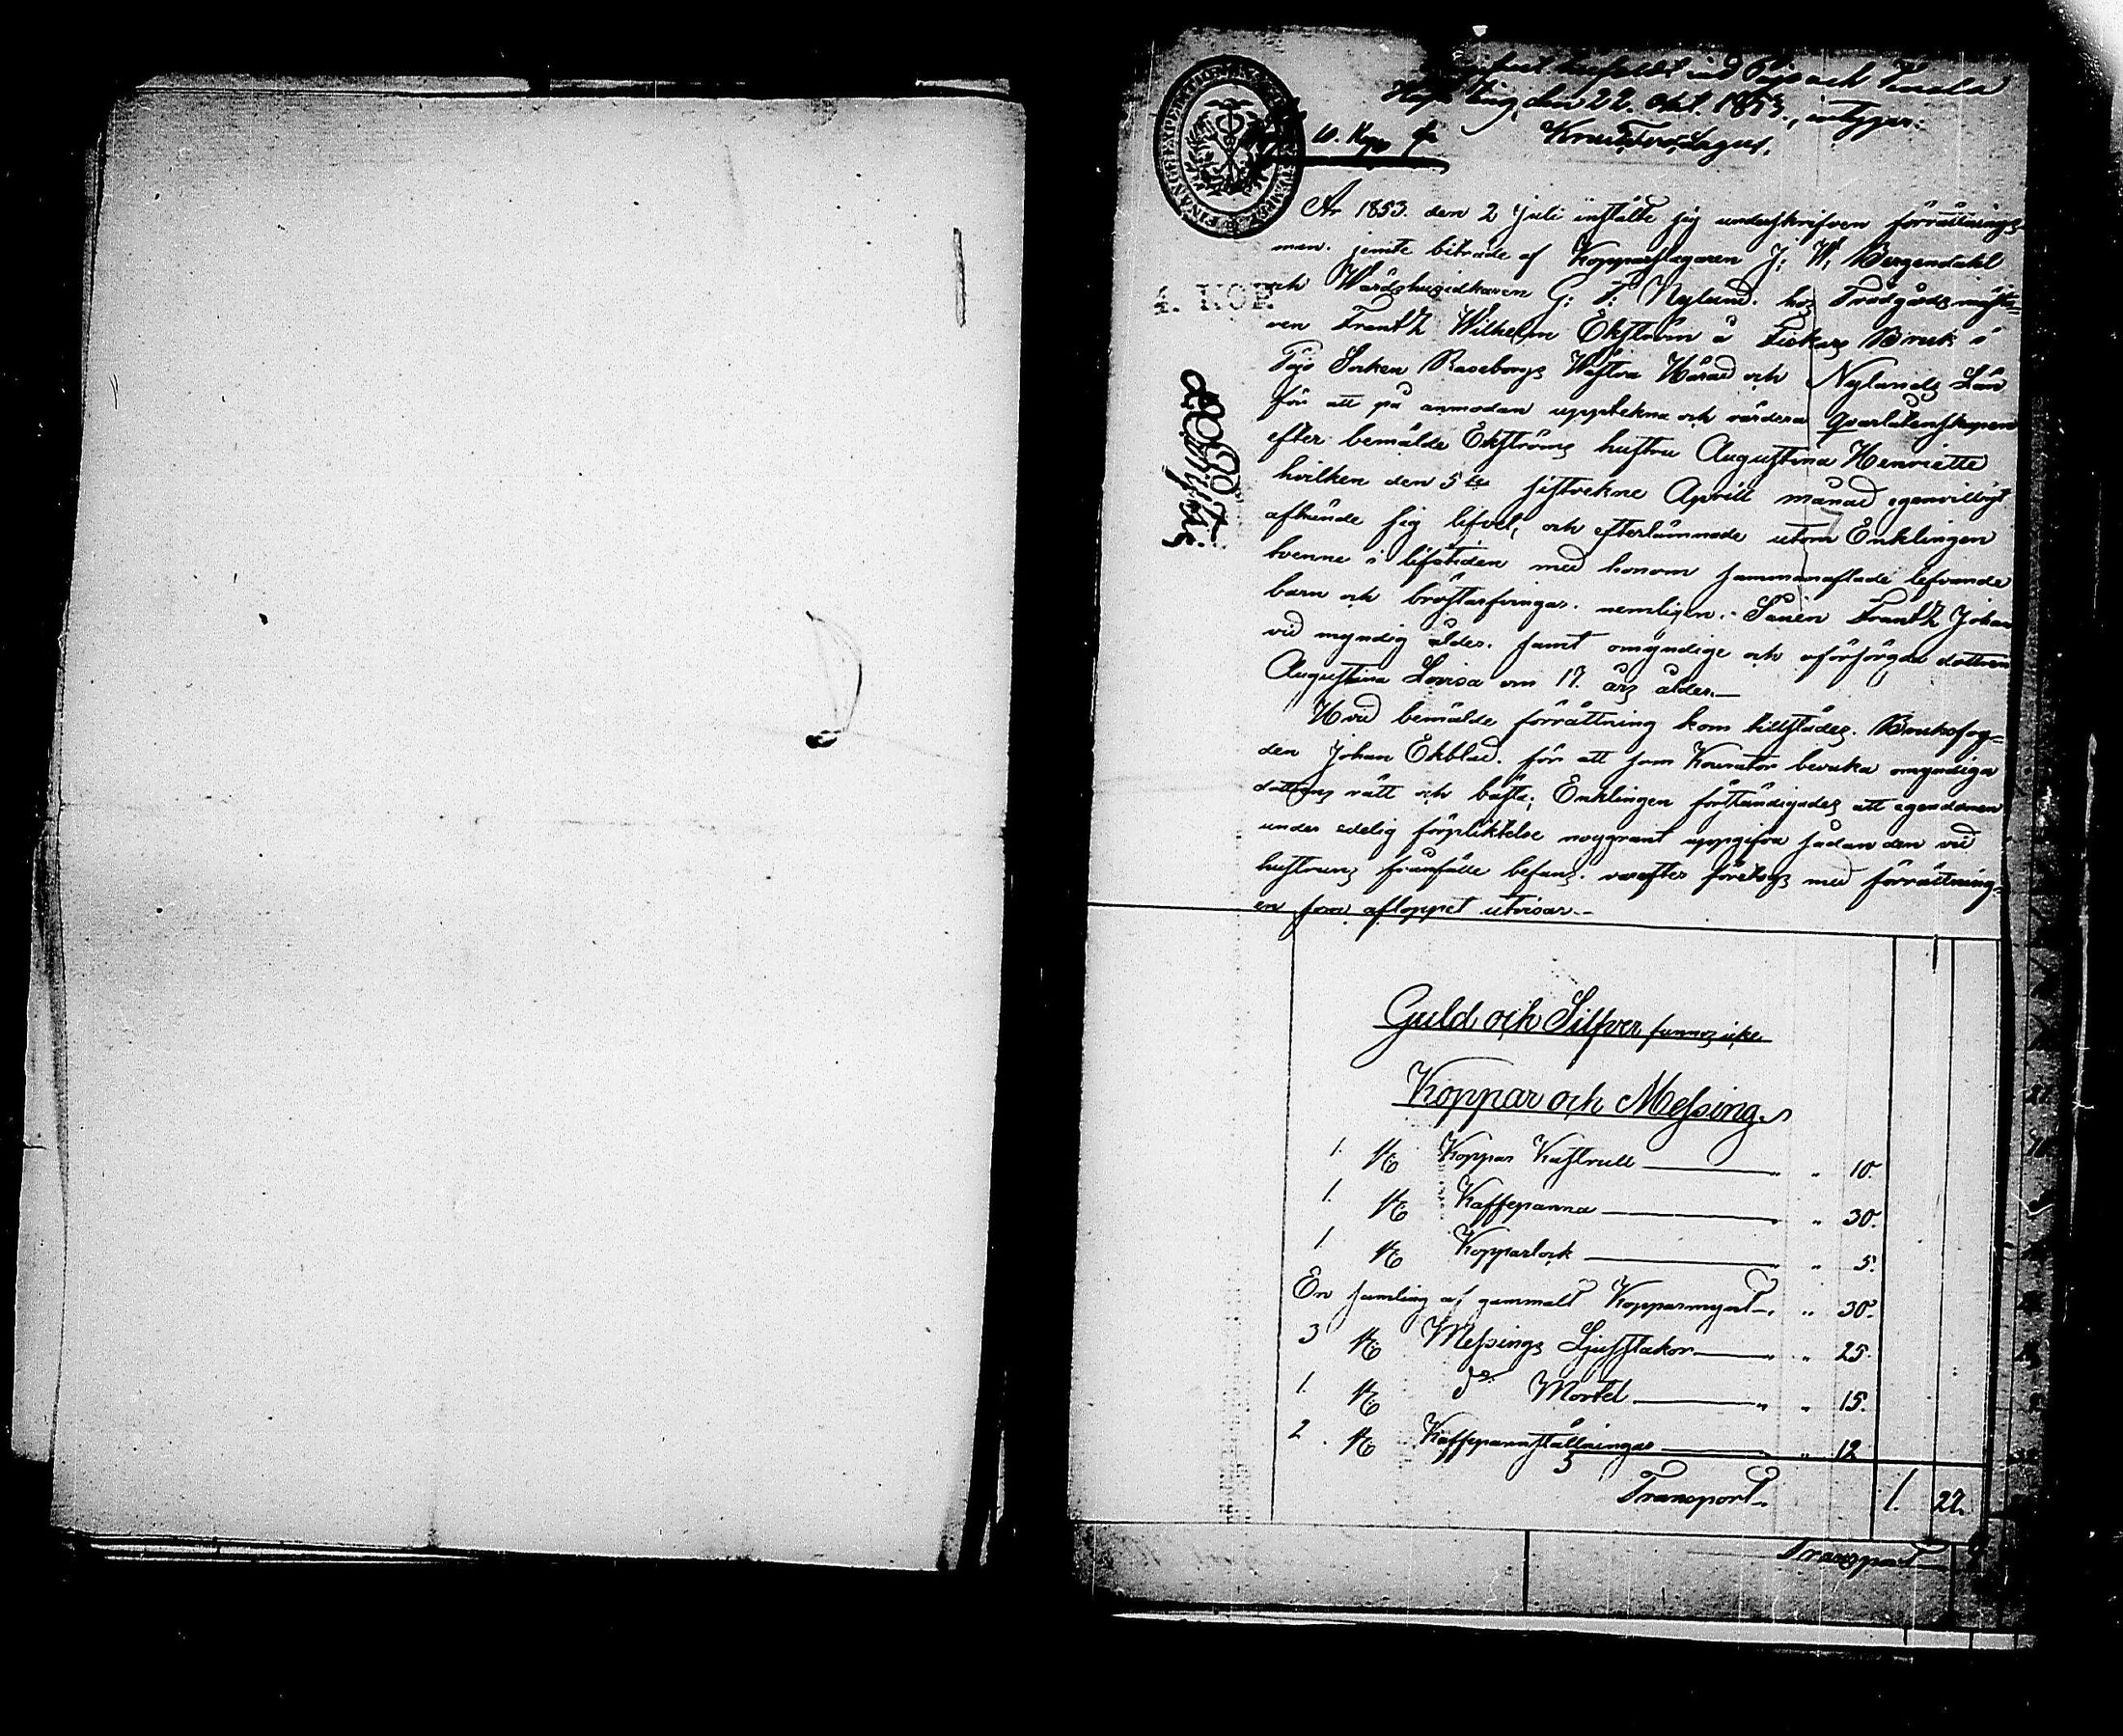 uti Pojo och Tenala
Höste Ting, den 22. Okt. 1853., intygar:
10. Kop. Sr
Knut Fredr. Lagus.
FINANCE EXPEDITION
4. KOP.
År 1853. den 2 Juli instälte sig undeskrifven förrättnings
man. jemte biträde af Kopparslagaren J: W: Bergendahl
och Wärdshusidkaren G: F: Nylund. hos Trädgårdsmästa=
ren Frantz Wilhelm Ekström å Fiskars Bruk i
Pojo Socken Raseborgs Wästra Härad och Nylands Län
för att på anmodan uppteckna och värdera qvarlåtenskapen
efter bemälde Ekströms hustru Augustina Henriette
hvilken den 5te sistvekne Aprill månad egenvilligt
afhände sig lifvet, och efterlämnade utom Enklingen
tvenne i lifstiden med honom sammanaflade lefvande
barn och bröstarfvingar. nemligen:- Sånen Frantz Johan
vid myndig ålder. samt omyndige och oförsörgda dottren
Augustina Lovisa om 17. års ålder.—
Wid bemälde förrättning kom tillstädes. Bruksfog=
den Johan Ekblad. för att som Kourator bevaka omyndiga
dottrens rätt och bästa; Enklingen förständigades att egendomen
under edelig förpliktelse noggrant uppgifva sådan den vid
hustruns frånfälle befans. varefter företogs med förrättning=
en som afloppet utvisar.—
Guld och Silfver fannos icke.
Koppar och Messing.
1. st: Koppar Kastrull — " " 10.
1. st: Kaffepanna — " " 30.
1 st: Kopparlock — " " 5.
En samling af gammalt Kopparmynt —. " " 30.
3 st: Messings Ljusstakar — " " 25.
1. st: do Mortel — " " 15.
2. st: Kaffepannställningar — " 12
Transport. 1. 27.
Transport